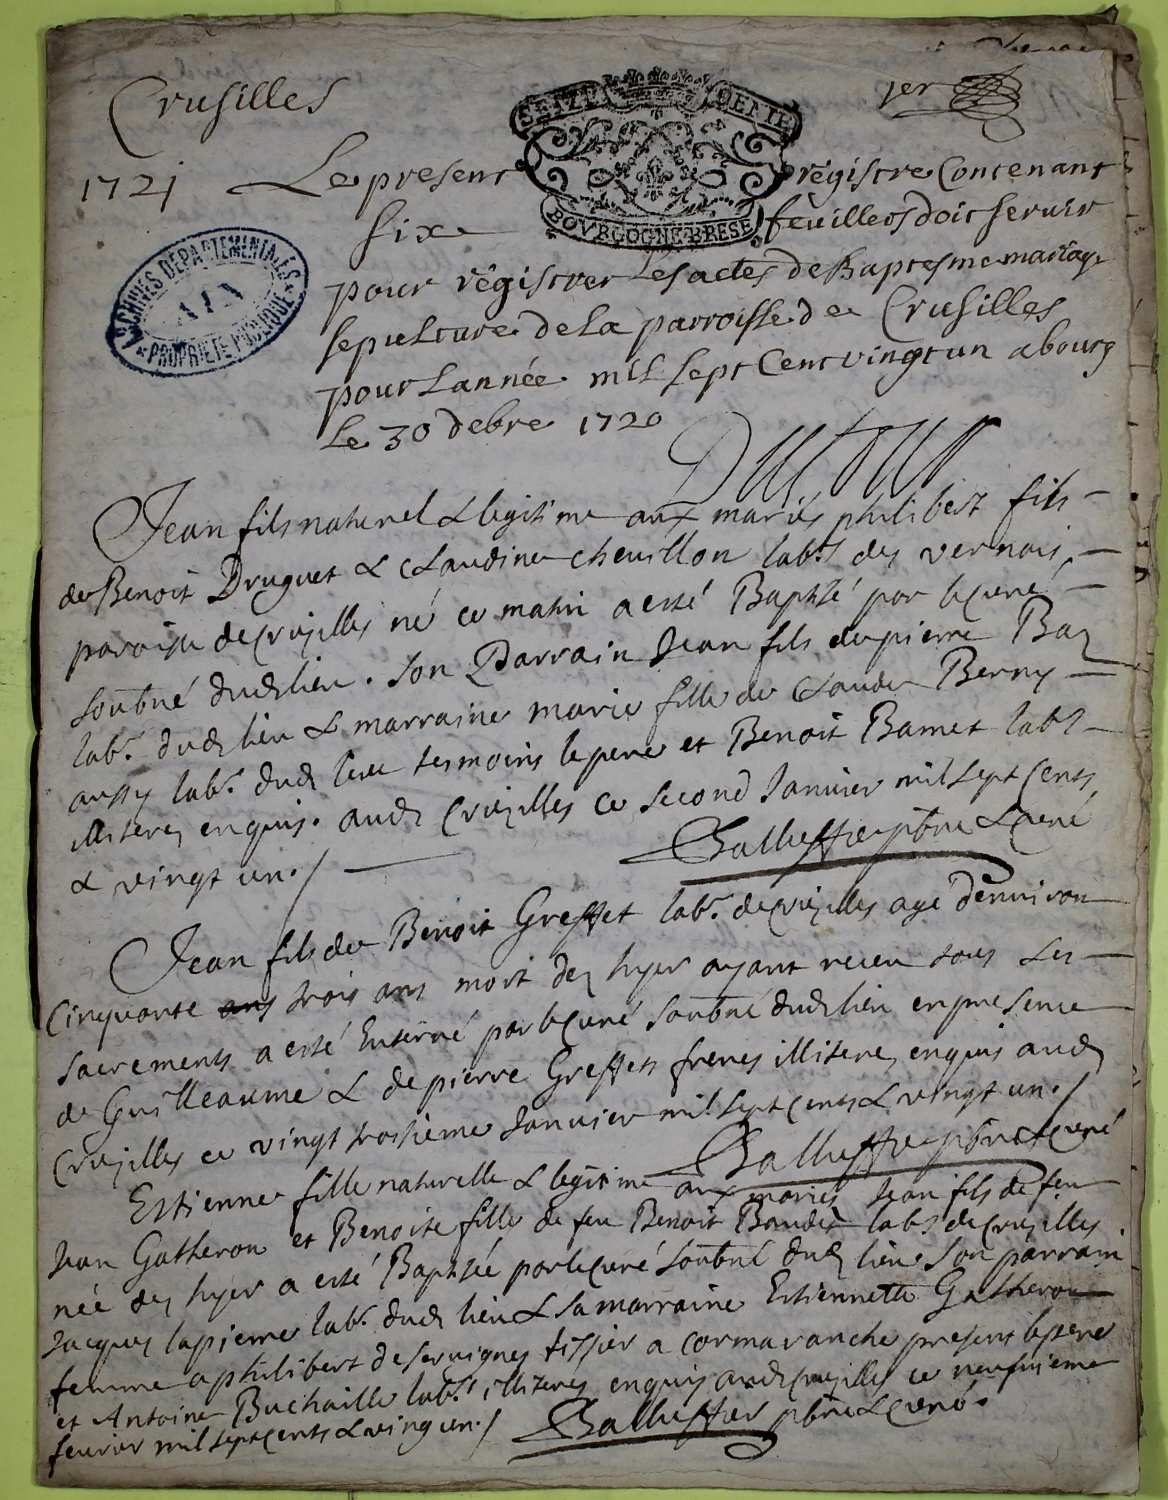 Crusilles
SEIZE DENIE
1er
1721 Le present registre Contenant
BOVRGOGNE·BRESE
six feuilletz doit servir
ARCHIVES DEPARTEMENTALES
AIN
* PROPRIETE PUBLIQUE *
pour registrer Les actes de Baptesme mariage
sepulture de La parroisse de Crusilles
pour Lannée mil sept Cent vingt un a bourg
Le 30 debre 1720
Jean fils naturel & legitime aux mariés philibert fils
de Benoit Druguet & Claudine chevillon labrs des vernais
paroisse de crusilles né ce matin a esté Baptisé par le curé
soubné dud lieu. son Parrain Jean fils de pierre
labr. dud lieu & marraine marie fille de claude Berny
aussy labr. dud lieu tesmoins le pere et Benoit Bamet labrs
illiterez enquis. aud crusilles ce second Janvier mil sept cents
& vingt un./
pbre & curé
Jean fils de Benoit Greffet labr. de crusilles agé d'environ
cinquante ans trois ans mort dez hyer ayant receu tous les
sacrements a esté Enterré par le curé soubné dud lieu en presence
de Guilleaume & de pierre Greffets freres illiterez enquis aud
crusilles ce vingt troisieme Janvier mil sept cents & vingt un./
pbre & curé
Estienne fille naturelle & legitime aux mariés Jean fils de feu
Jean Gatheron et Benoite fille de feu Benoit Baudet labrs de crusilles
née dez hyer a esté Baptisée par le curé soubné dud lieu son parrain
Jacques lapierre labr. dud lieu & sa marraine Estiennette Gatheron
femme a philibert deservignes tissier a cormaranche presens le pere
et Antoine Buchaille labrs illiteres enquis aud crusilles ce neufvieme
fevrier mil sept cents & vingt un./ pbre & curé.